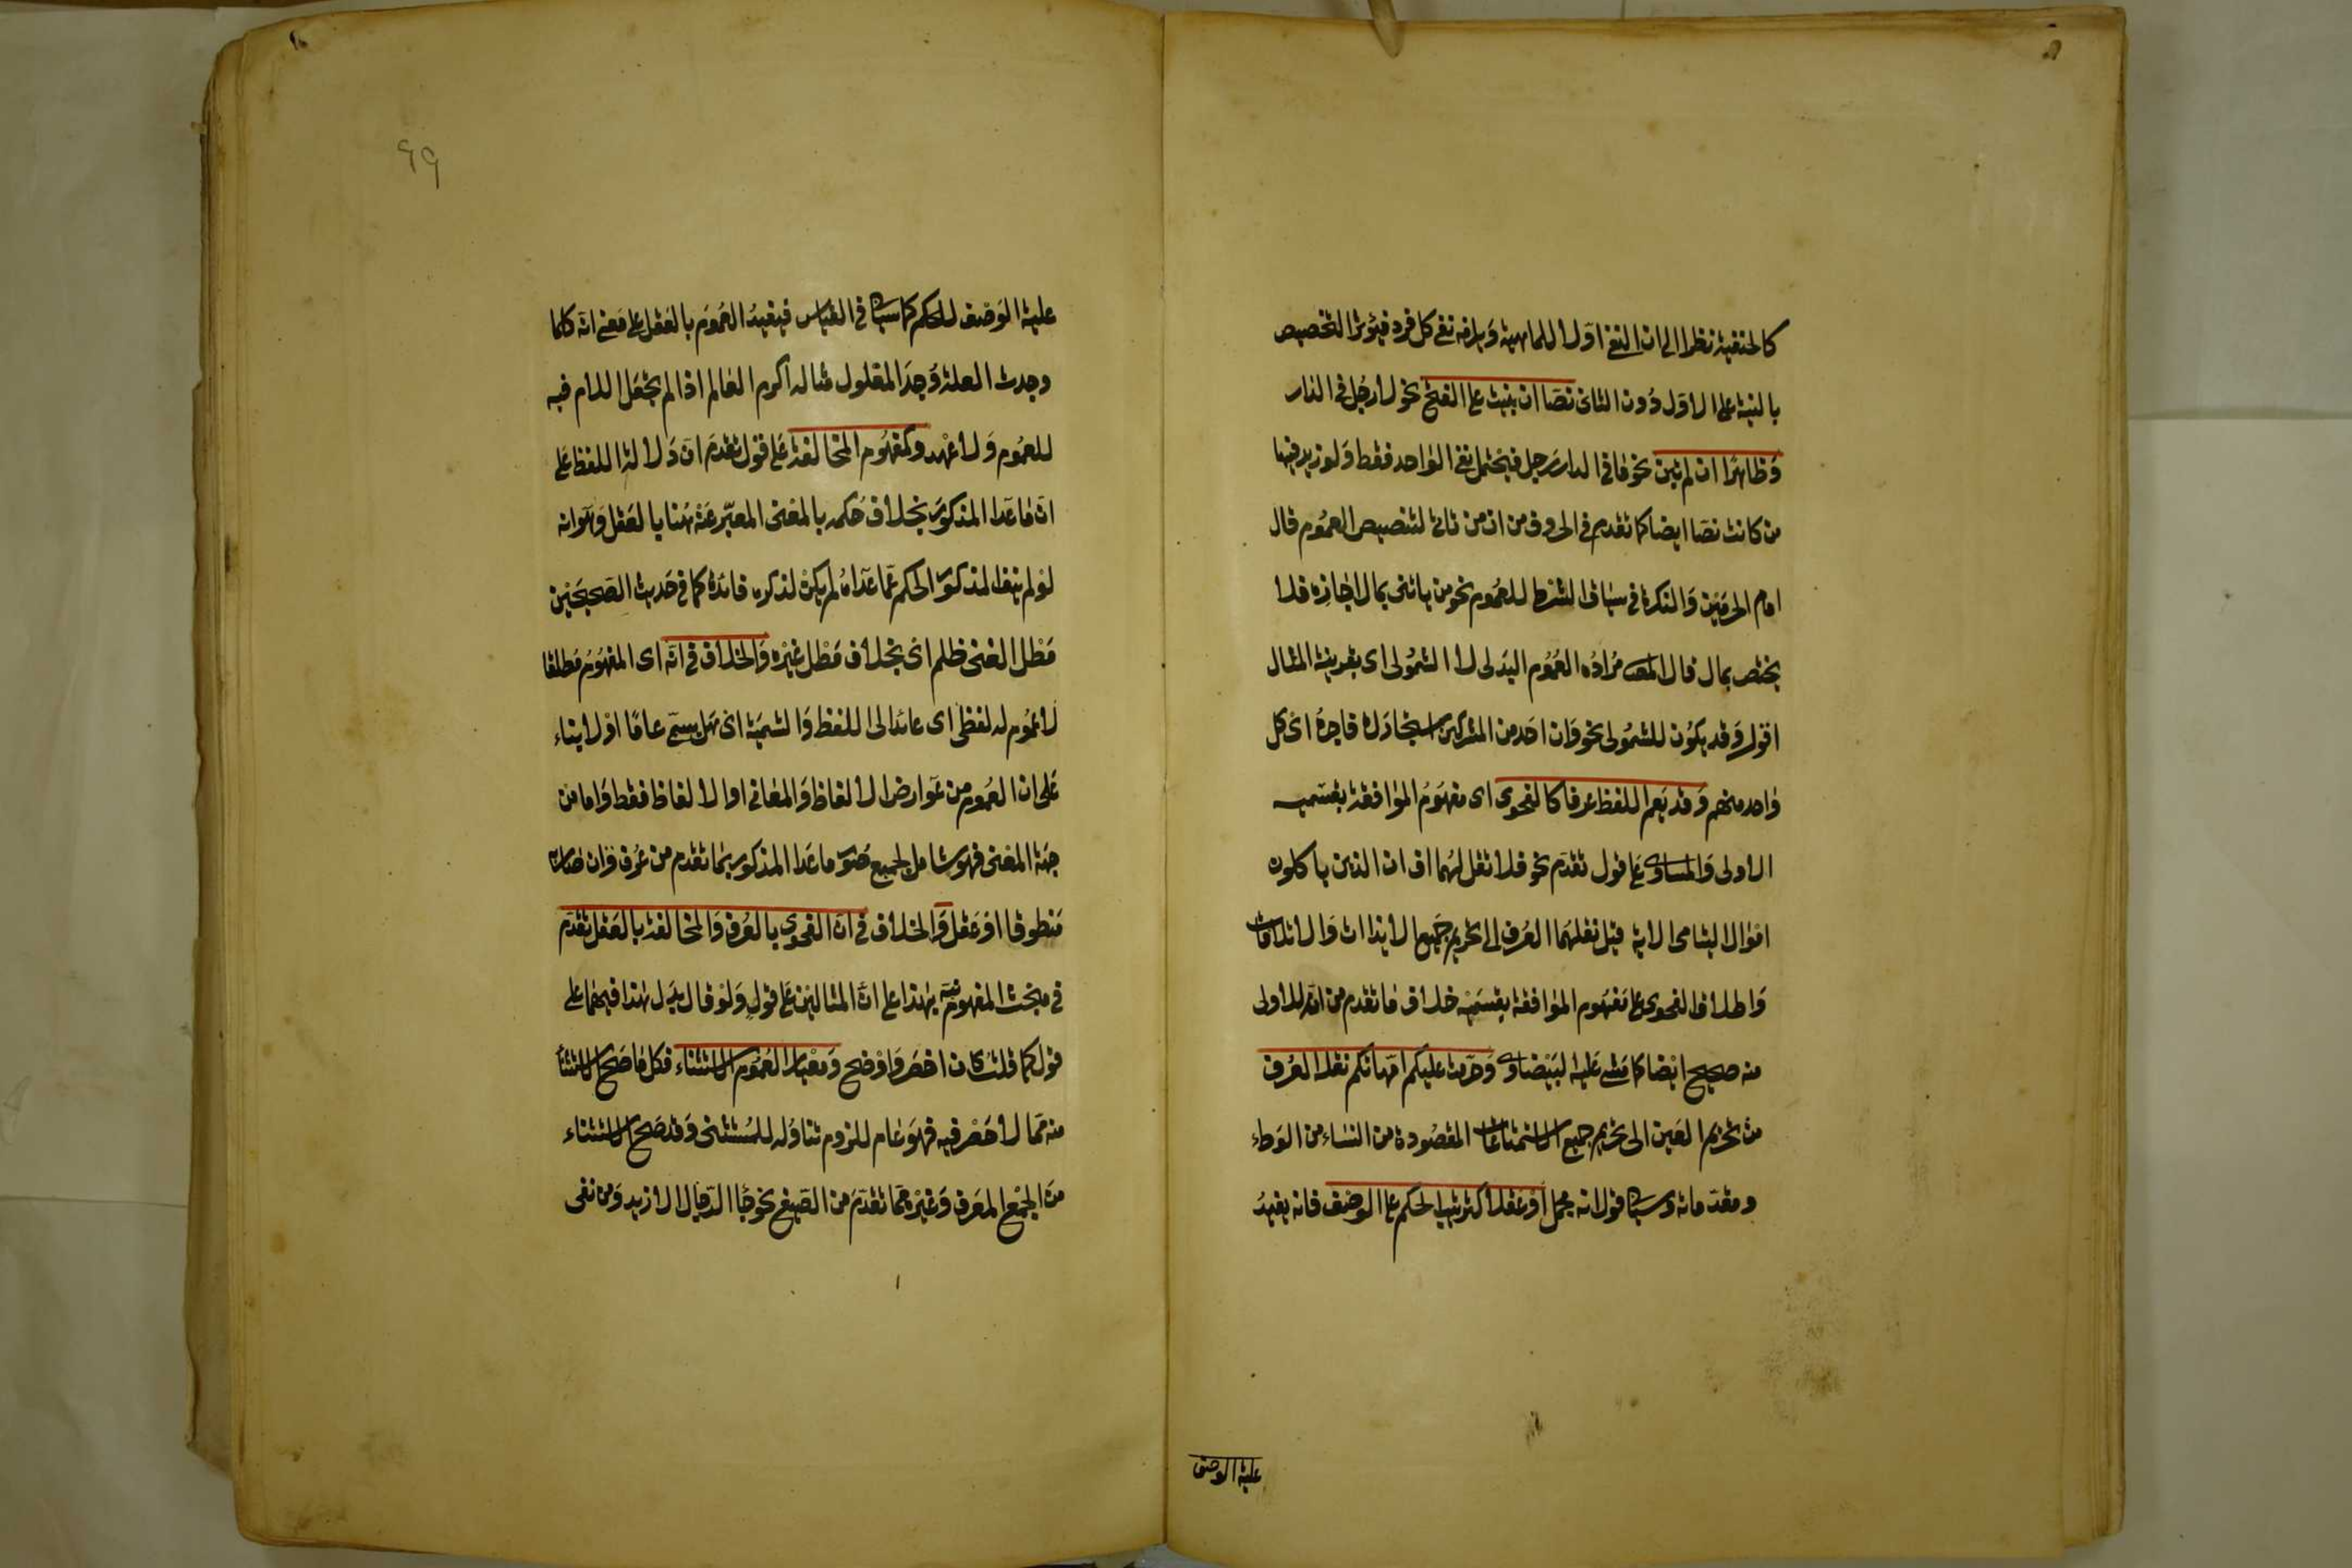 كالحنفية نظرا الى ان النفى اولا للماهية ويلزمه نفى كل فرد فيؤثر التخصيص
بالنية على الاول دون الثانى نصا ان بنيت على الفتح نحو لا رجل فى الدار
وظاهرا ان لم تبن نحو ما فى الدار رجل فيحتمل نفى الواحد فقط ولو زيد فيها
من كانت نصا ايضا كما تقدم فى الحروف من ان من تاتى لتنصيص العموم قال
امام الحرمين والنكرة فى سياق الشرط للعموم نحو من ياتنى بمال اجازه فلا
يختص بمال قال المص مراده العموم البدلى لا الشمولى اى بقرينة المثال
اقول وقد يكون للشمولى نحو وان احد من المشركين استجارك فاجره اى كل
واحد منهم وقد يعم اللفظ عرفا كالفحوى اى مفهوم الموافقة بقسميه
الاولى والمساوى على قول تقدم نحو فلا تقل لهما اف ان الذين ياكلون
اموال اليتامى الاية قيل نقلهما العرف الى تحريم جميع الايذاات والاتلافات
واطلاق الفحوى على مفهوم الموافقة بقسميه خلاف ما تقدم من انه للاولى
منه صحيح ايضا كما مشى عليه البيضاوى وحرمت عليكم امهاتكم نقله العرف
من تحريم العين الى تحريم جميع الاستمتاعات المقصودة من النساء من الوطء
ومقدماته وسياتى قول انه مجمل او عقلا كترتيب الحكم على الوصف فانه يفيد
علية الوصف
٩٩
علية الوصف للحكم كما سياتى فى القياس فيفيد العموم بالعقل على معنى انه كلما
وجدت العلة وجد المعلول مثاله اكرم العالم اذا لم تجعل اللام فيه
للعموم ولا عهد وكمفهوم المخالفة على قول تقدم ان دلالة اللفظ على
ان ما عدا المذكور بخلاف حكمه بالمعنى المعبر عنه هنا بالعقل وهو انه
لو لم ينف المذكور الحكم عما عداه لم يكن لذكره فائدة كما فى حديث الصحيحين
مطل الغنى ظلم اى بخلاف مطل غيره والخلاف فى انه اى المفهوم مطلقا
لا عموم له لفظى اى عائد الى اللفظ والتسمية اى هل يسمى عاما اولا بناء
على ان العموم من عوارض الالفاظ والمعانى او الالفاظ فقط واما من
جهة المعنى فهو شامل لجميع صور ما عدا المذكور بما تقدم من عرف وان صار
منطوقا او عقل والخلاف فى ان الفحوى بالعرف والمخالفة بالعقل تقدم
فى مبحث المفهوم نبه بهذا على ان المثالين على قول ولو قال بدل هذا فيهما على
قول كما قلت كان اخصر واوضح ومعيار العموم الاستثناء فكل ما صح الاستثناء
منه مما لا حصر فيه فهو عام للزوم تناوله للمستثنى وقد صح الاستثناء
من الجمع المعرف وغيره مما تقدم من الصيغ نحو جاء الرجال الا زيد ومن نفى